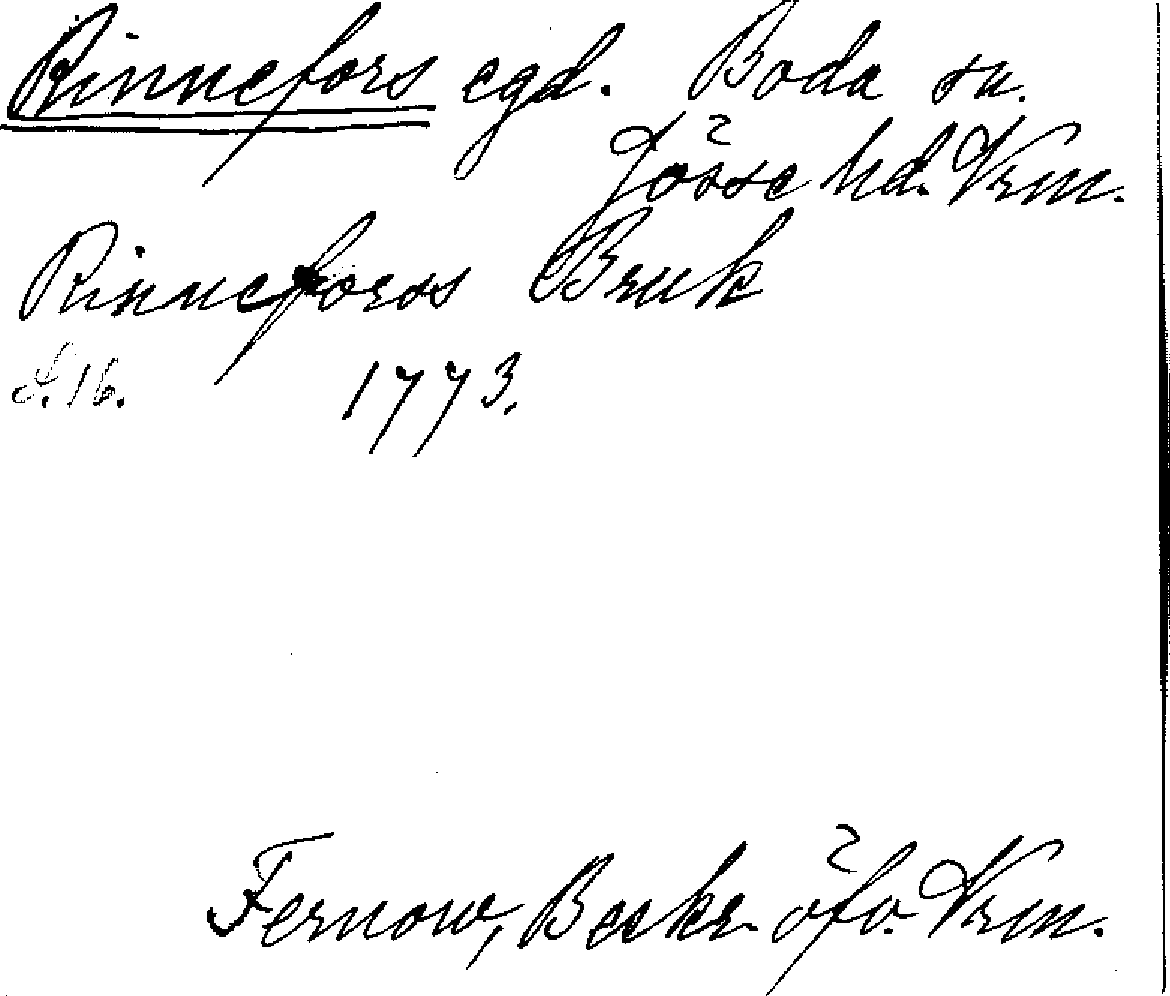 Rinnefors egd. Boda sn.
Jösse hd. Vrm.
Rinneforss Bruk
S. 16. 1773.
Fernow, Beskr. öfv. Vrm.